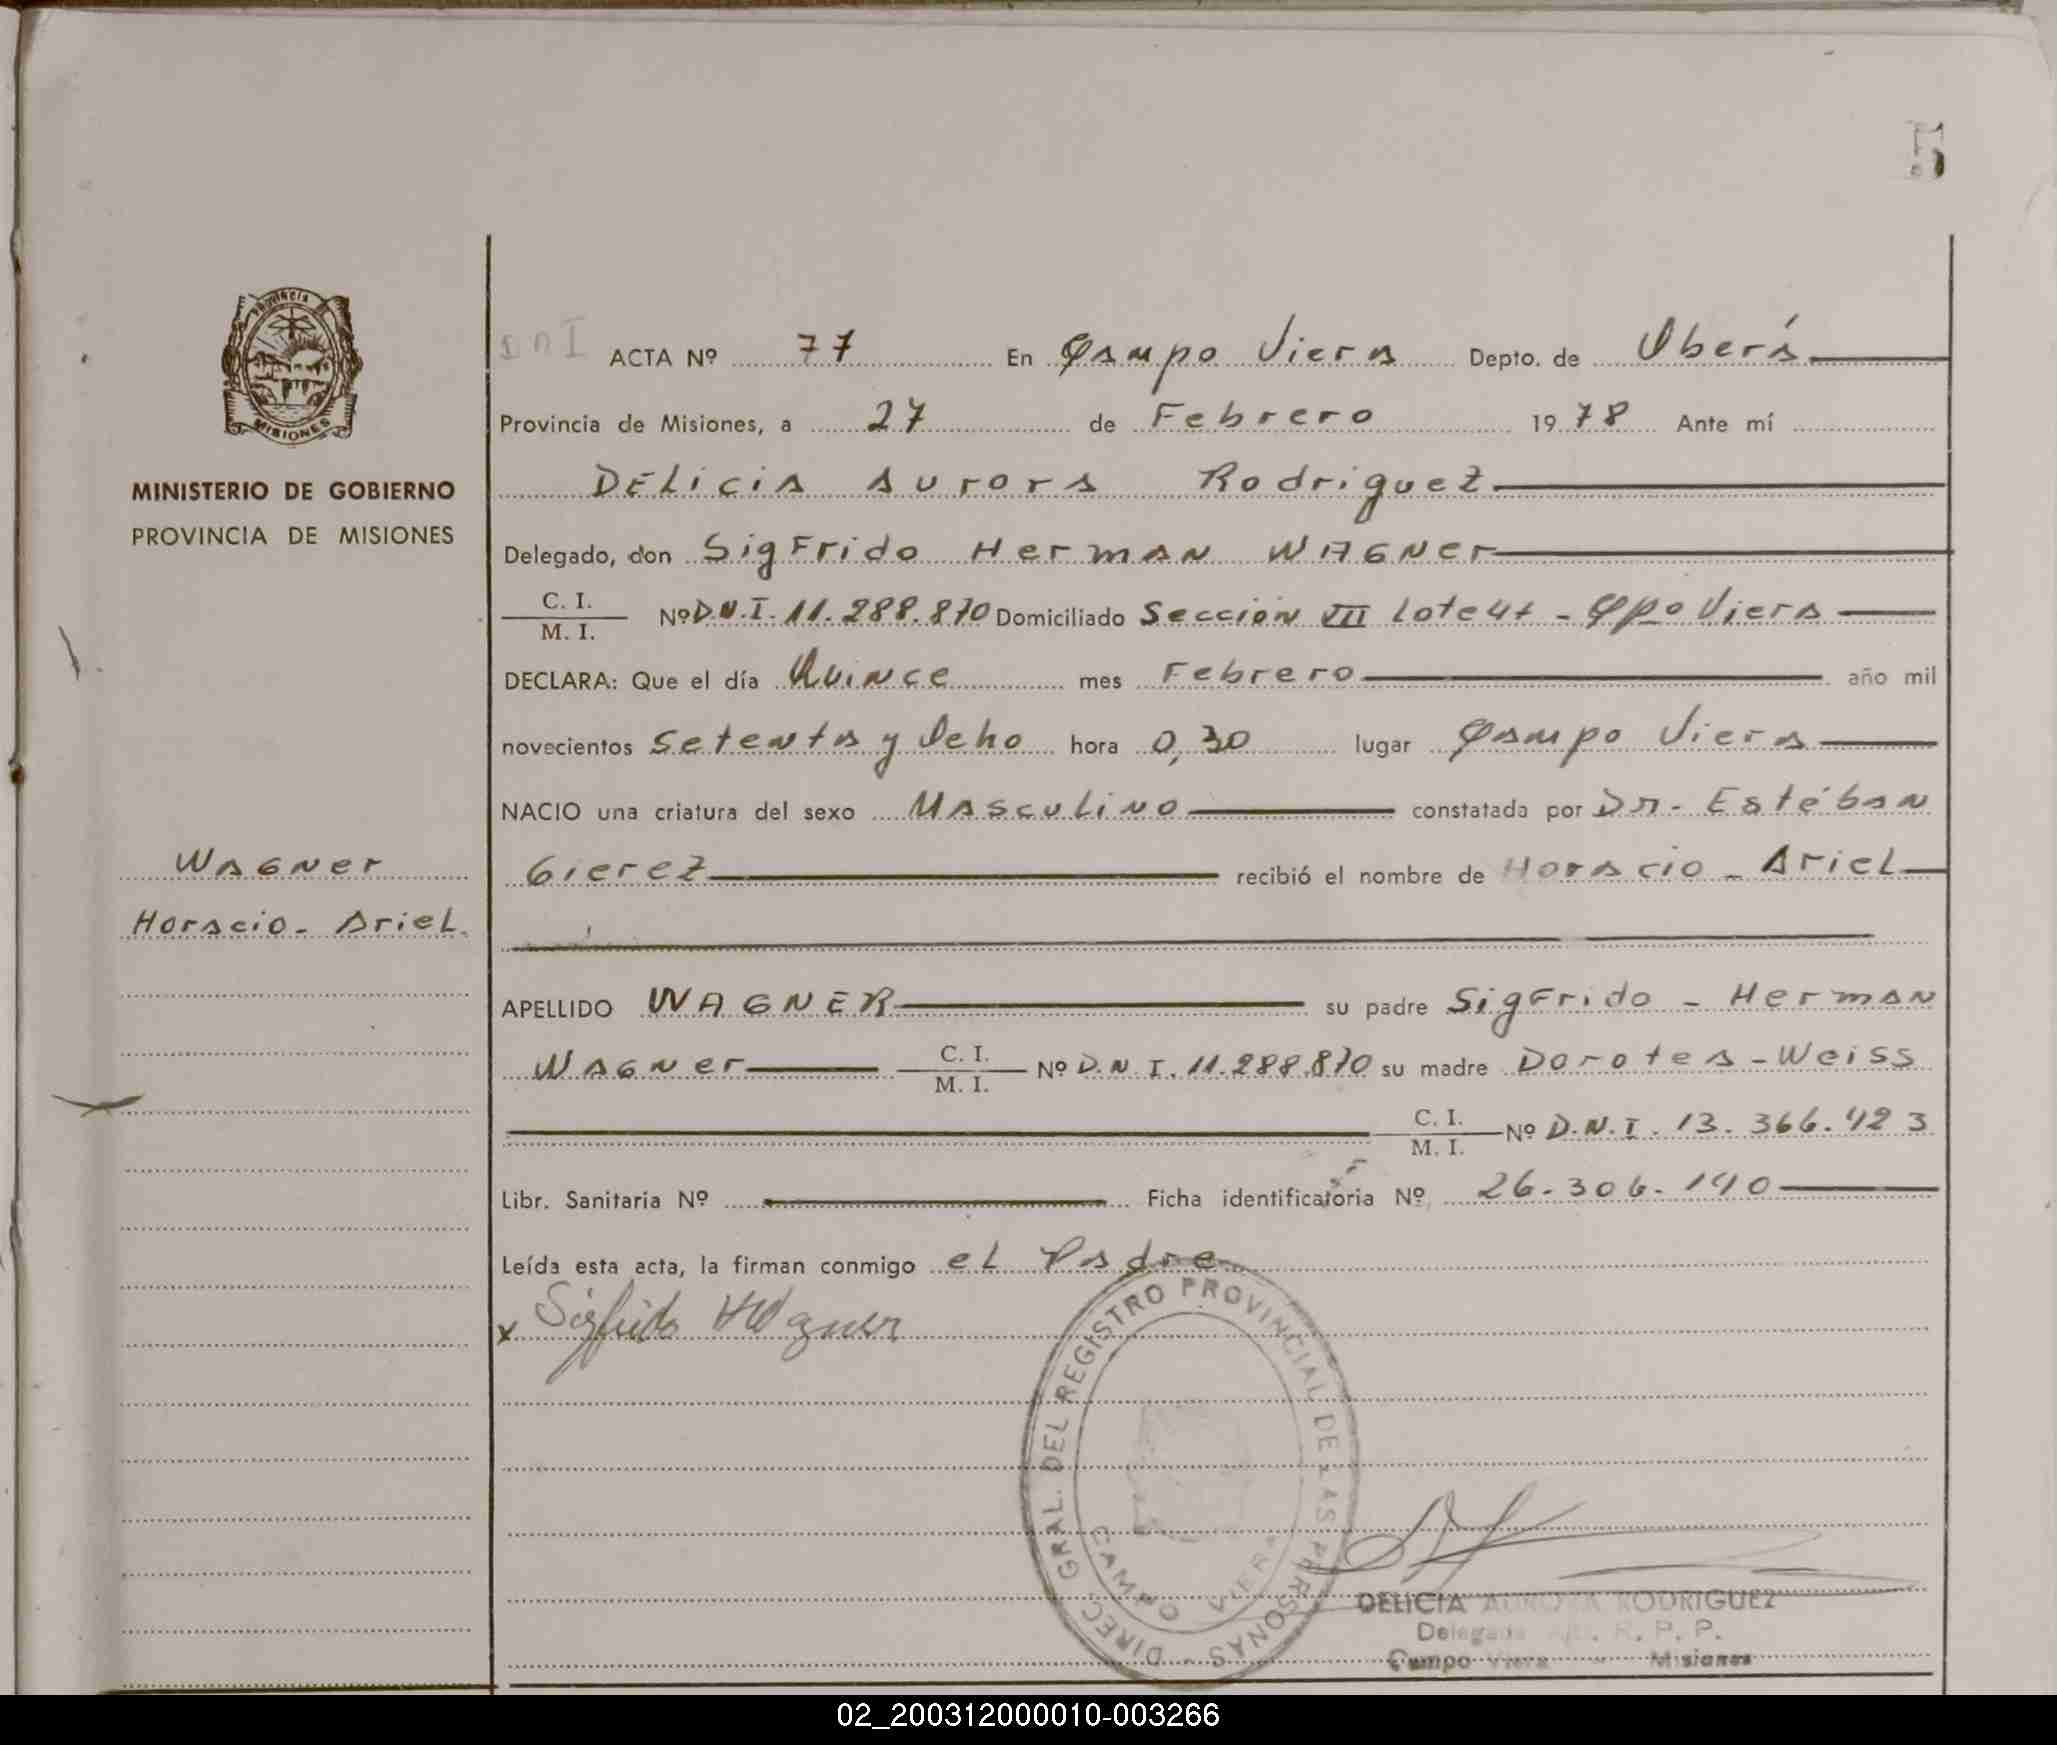 Provincia
MISIONES
MINISTERIO DE GOBIERNO
PROVINCIA DE MISIONES
Wagner
Horacio - Ariel.
ACTA Nº 77 En Campo Viera Depto. de Oberá
Provincia de Misiones, a 27 de Febrero 1978 Ante mí
Delicia Aurora Rodriguez
Delegado, don Sigfrido Herman Wagner
C. I.
M. I. Nº D.N.I. 11.288.870 Domiciliado Sección VII Lote 41 - Cpo Viera
DECLARA: Que el día Quince mes Febrero año mil
novecientos Setenta y Ocho hora 0,30 lugar Campo Viera
NACIO una criatura del sexo Masculino constatada por Dr. Estéban
Gierez recibió el nombre de Horacio - Ariel
APELLIDO WAGNER su padre Sigfrido - Herman
Wagner C. I.
M. I. Nº D.N.I. 11.288.870 su madre Dorotea - Weiss
C. I.
M. I. Nº D.N.I. 13.366.423
Libr. Sanitaria Nº Ficha identificatoria Nº 26.306.140
Leída esta acta, la firman conmigo el Padre
x Sigfrido H Wagner
DIREC. GRAL. DEL REGISTRO PROVINCIAL DE LAS PERSONAS -
CAMPO VIERA
DELICIA AURORA RODRIGUEZ
Delegada R. P. P.
Campo Viera - Misiones
02_200312000010-003266